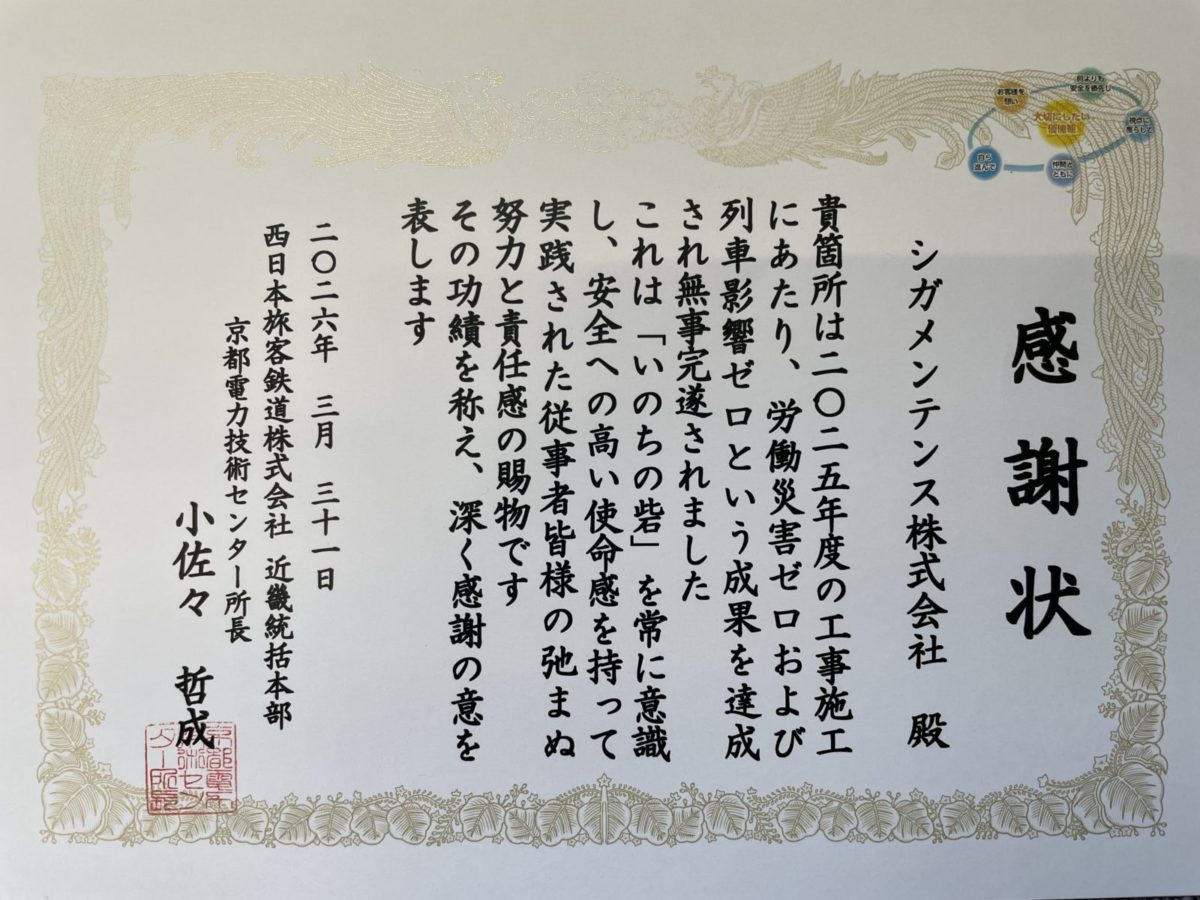 感謝状
シガメンテンス株式会社　殿
貴箇所は二〇二五年度の工事施工
にあたり、労働災害ゼロおよび
列車影響ゼロという成果を達成
され無事完遂されました
これは「いのちの砦」を常に意識
し、安全への高い使命感を持って
実践された従事者皆様の弛まぬ
努力と責任感の賜物です
その功績を称え、深く感謝の意を
表します
二〇二六年　三月　三十一日
西日本旅客鉄道株式会社　近畿統括本部
京都電力技術センター所長
小佐々　哲成
お客様を
想い
何よりも
安全を優先し
大切にしたい
価値観
視点に
自ら
進んで
仲間と
ともに